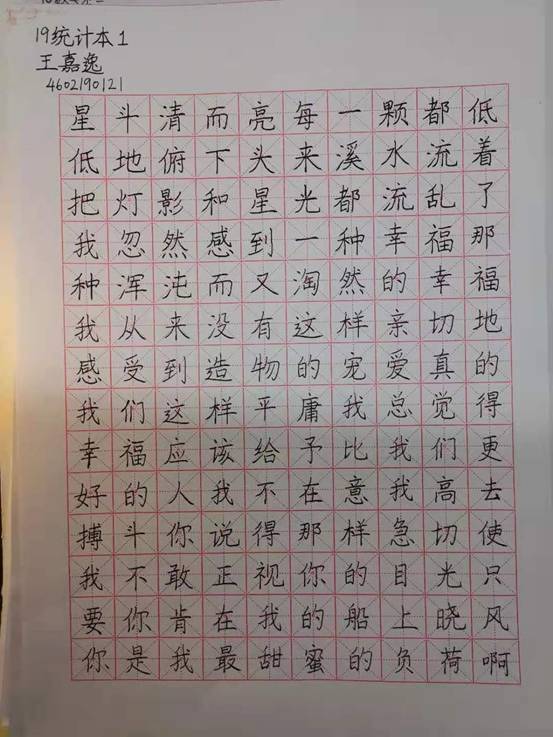 19统计本1
王嘉逸
4602190121
星斗清而亮每一颗都低
低地俯下头来溪水流着
把灯影和星光都流乱了
我忽然感到一种幸福那
种浑沌而又淘然的幸福
我从来没有这样亲切地
感受到造物的宠爱真的
我们这样平庸我总觉得
幸福应该给予比我们更
好的人我不在意我高去
搏斗你说得那样急切使
我不敢正视你的目光只
要你肯在我的船上晓风
你是我最甜蜜的负荷啊